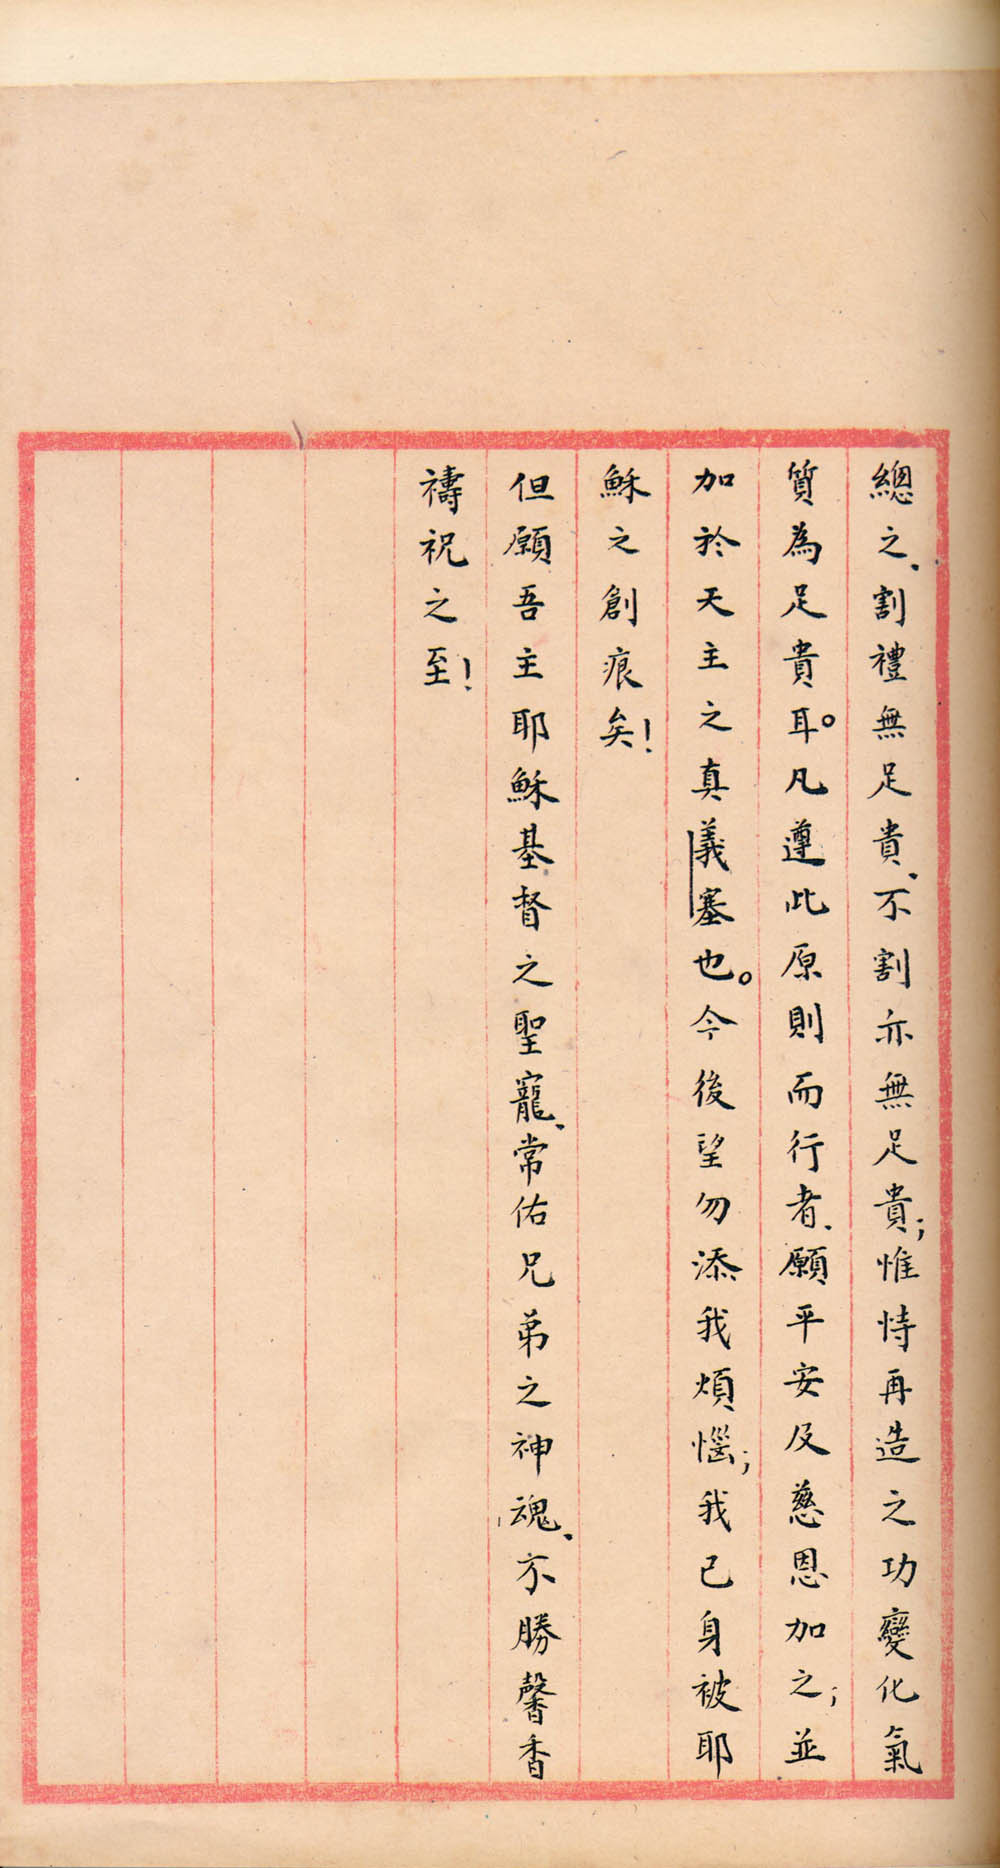 總之、割禮無足貴、不割亦無足貴；惟恃再造之功變化氣
質為足貴耳。凡遵此原則而行者、願平安及慈恩加之；並
加於天主之真義塞也。今後望勿添我煩惱；我已身被耶
穌之創痕矣！
但願吾主耶穌基督之聖寵、常佑兄弟之神魂、不勝馨香
禱祝之至！